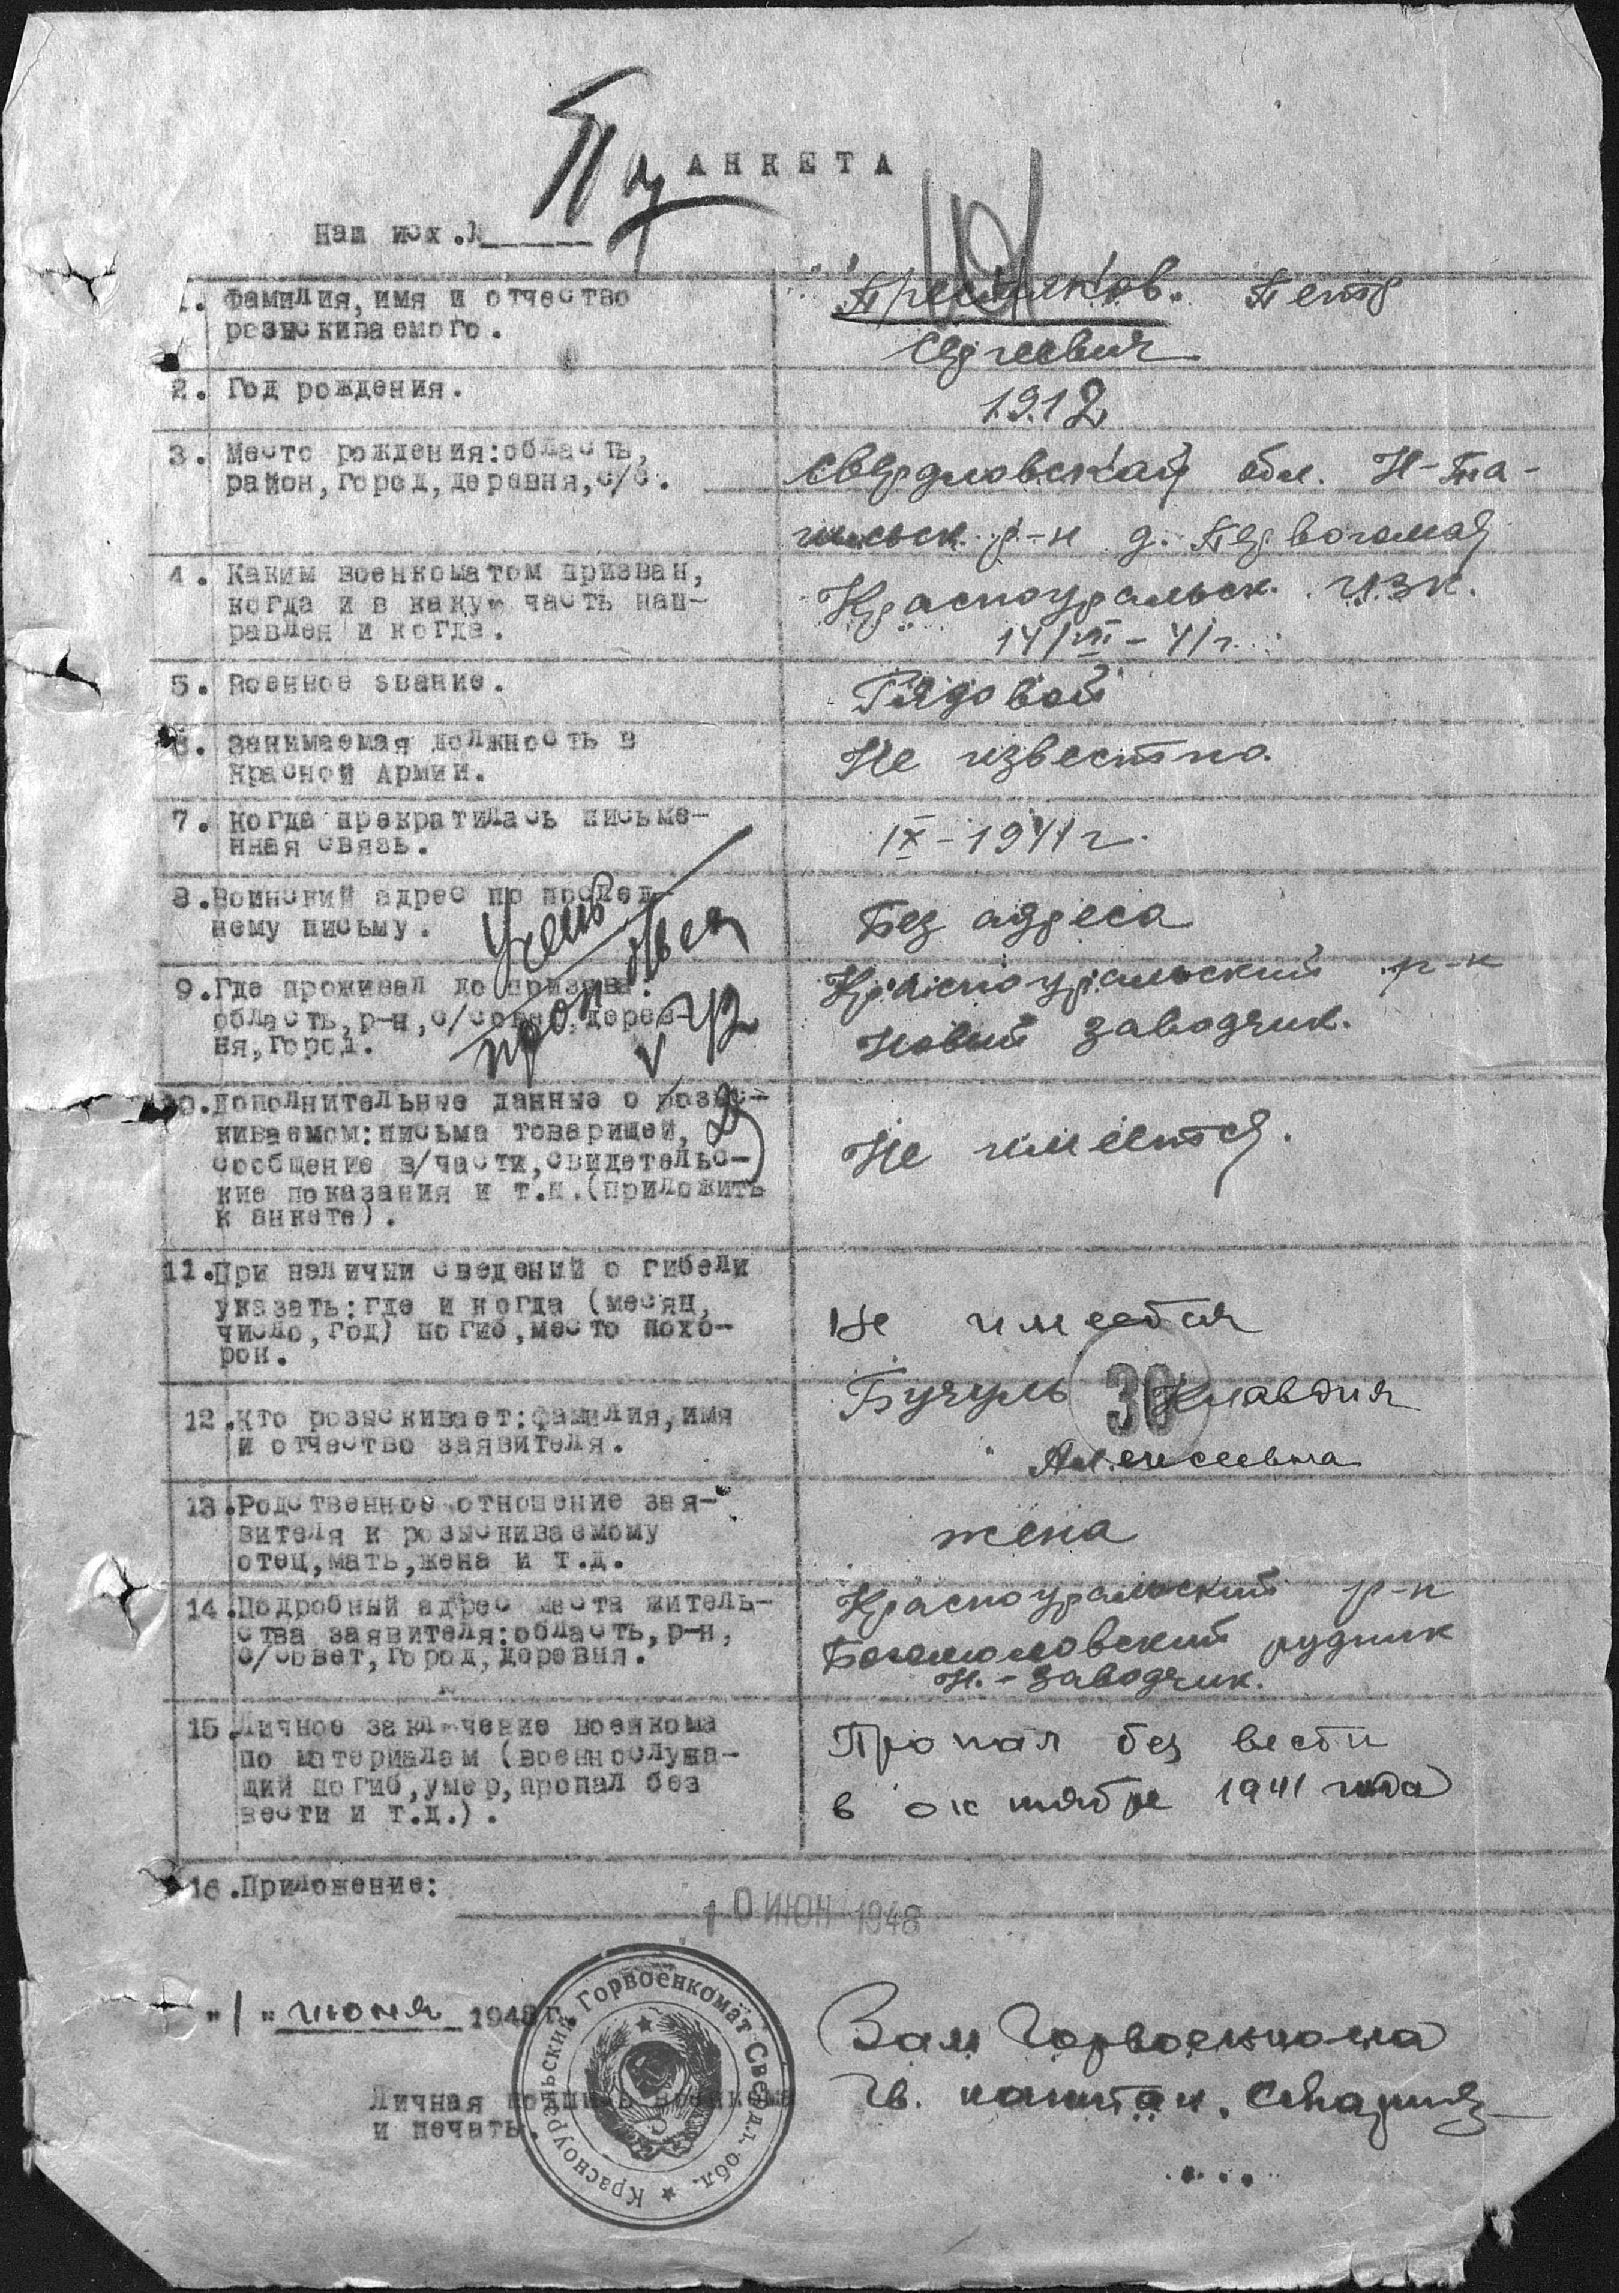 АНКЕТА
Наш исх.№
1. Фамилия, имя и отчество
разыскиваемого.
Петр
Сергеевич
2. Год рождения.
1912
3. Место рождения: область,
район, город, деревня, с/с.
Свердловской обл. Н-Та-
гильск. р-н д. Первогомай
4. Каким военкоматом призван,
когда и в какую часть нап-
равлен и когда.
Красноуральск.
14/VIII-41г.
5. Военное звание.
Рядовой
6. Занимаемая должность в
Красной Армии.
Не известно.
7. Когда прекратилась письме-
нная связь.
IX-1941г.
8. Воинский адрес по послед-
нему письму.
Без адреса
9. Где проживал до призыва:
область, р-н, с/совет, дерев-
ня, город.
Красноуральский р-н
Новый заводчик.
10. Дополнительные данные о разыс-
киваемом: письма товарищей,
сообщение в/части, свидетельс-
кие показания и т.п. (приложить
к анкете).
Не имеется.
11. При наличии сведений о гибели
указать: где и когда (месяц,
число, год) погиб, место похо-
рон.
Не имеется
12. Кто разыскивает: фамилия, имя
и отчество заявителя.
30
Клавдия
Алексеевна
13. Родственное отношение зая-
вителя к розыскиваемому
отец, мать, жена и т.д.
жена
14. Подробный адрес места житель-
ства заявителя: область, р-н,
с/совет, город, деревня.
Красноуральский р-н
Богомоловский рудник
Н.-Заводчик.
15. Личное заключение военкома
по материалам (военнослужа-
щий погиб, умер, пропал без
вести и т.д.).
Пропал без вести
в октябре 1941 года
16. Приложение:
10 ИЮН 1948
"1" июня 1948 г.
Красноуральский Горвоенкомат Свердл. обл.
Личная подпись военкома
и печать.
Зам Горвоенкома
Гв. капитан.